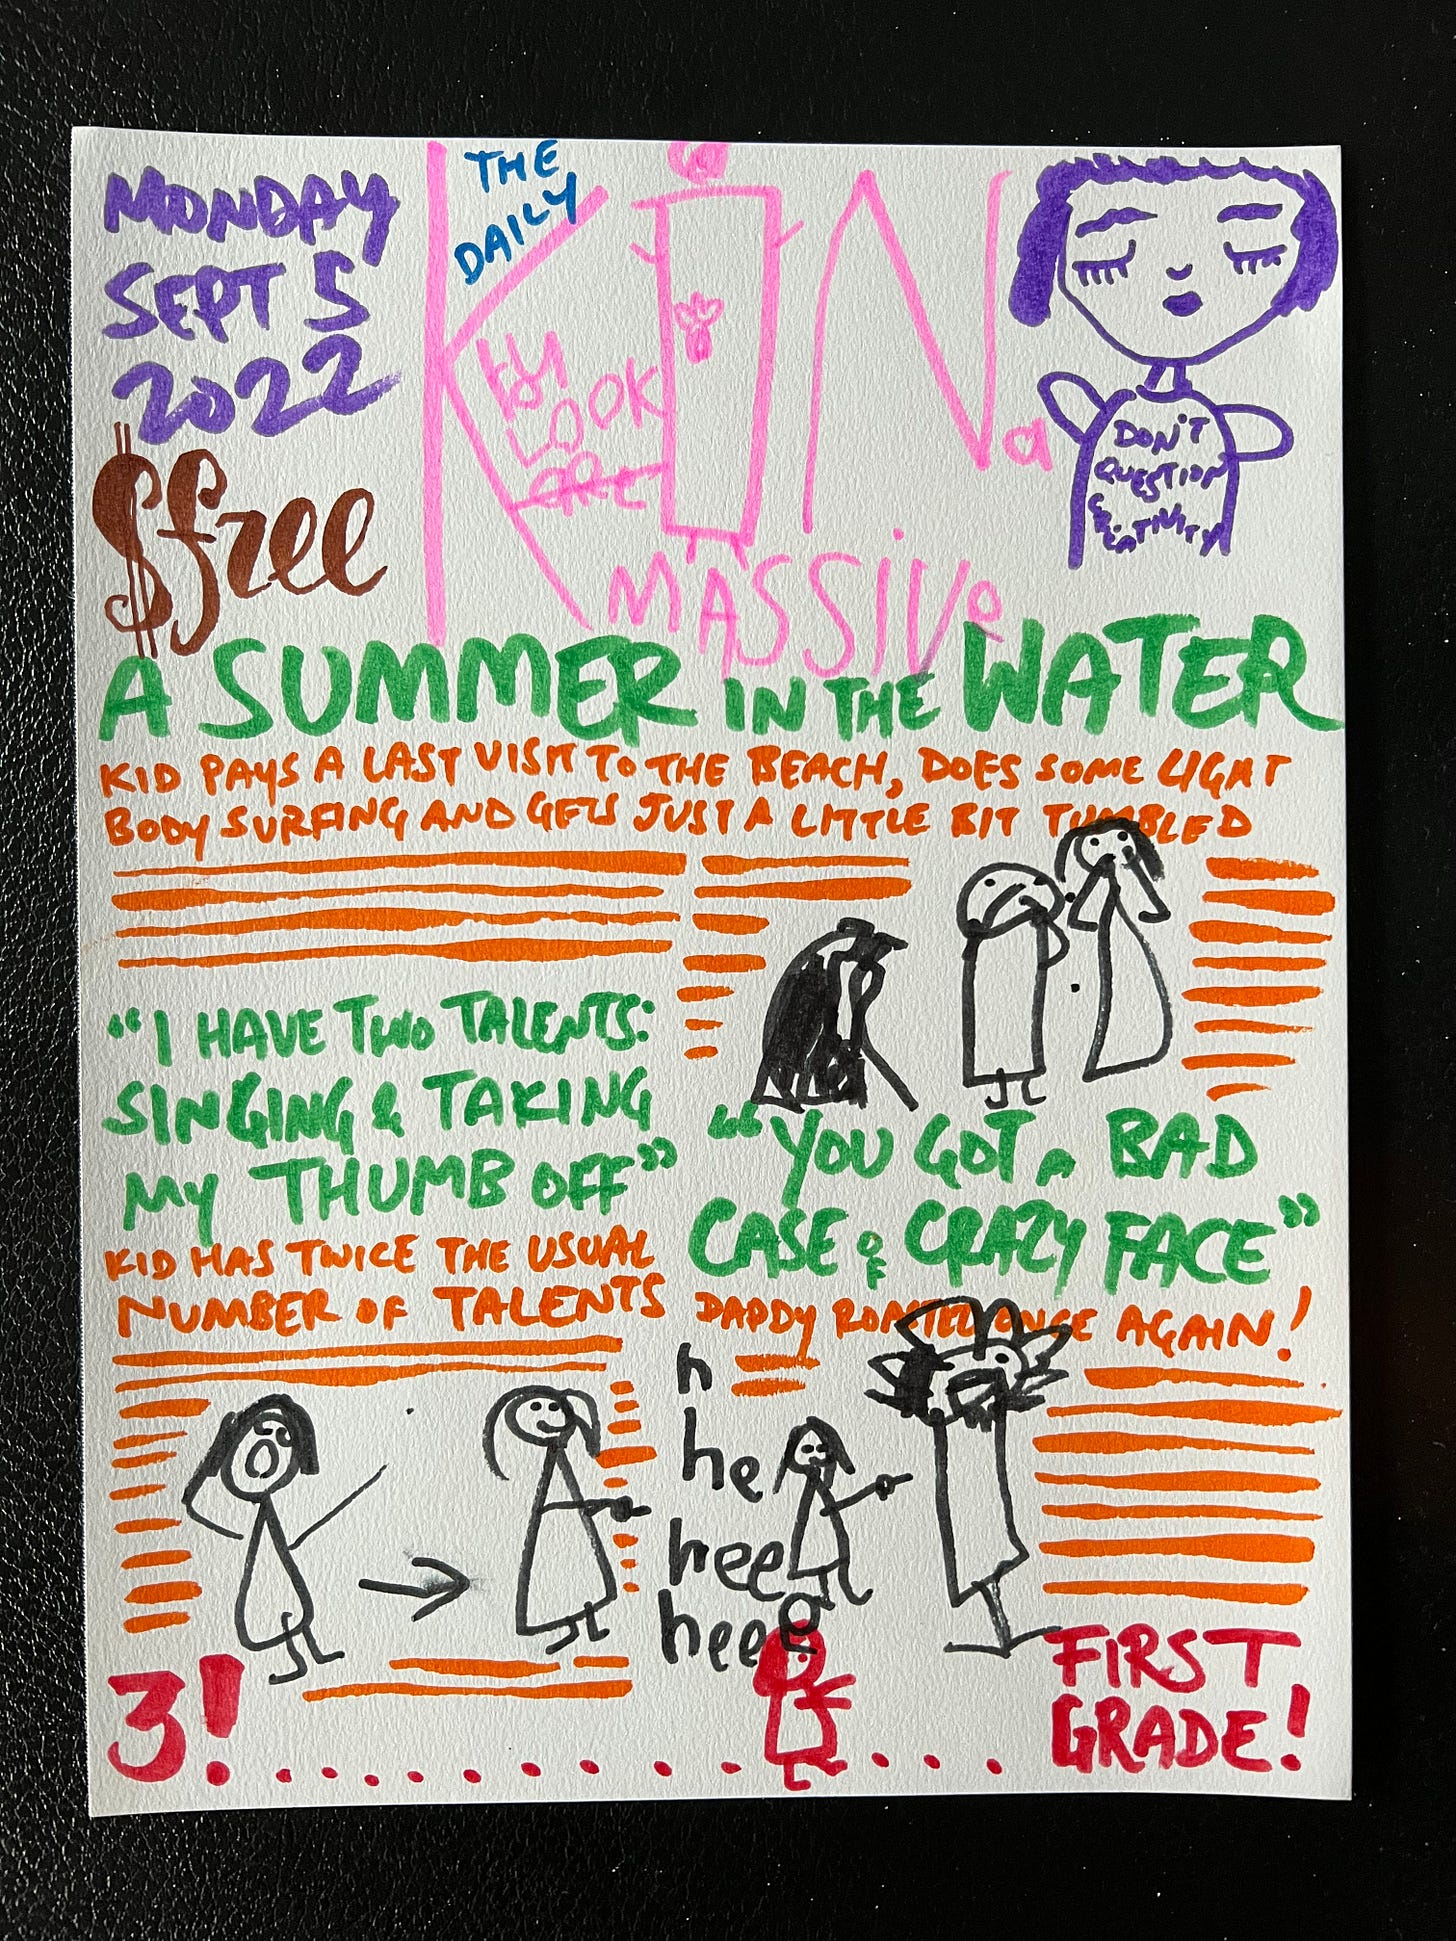 MONDAY
SEPT 5
2022
$free
THE
DAILY
KiN
LOOK
a
MASSIVe
DON'T
QUESTION
CREATIVITY
A SUMMER IN THE WATER
KID PAYS A LAST VISIT TO THE BEACH, DOES SOME LIGHT
BODY SURFING AND GETS JUST A LITTLE BIT TUMBLED
"I HAVE TWO TALENTS:
SINGING & TAKING
MY THUMB OFF"
KID HAS TWICE THE USUAL
NUMBER OF TALENTS
"YOU GOT A BAD
CASE OF CRAZY FACE"
DADDY ROASTED ONCE AGAIN!
h
he
hee
heee
3!
FIRST
GRADE!